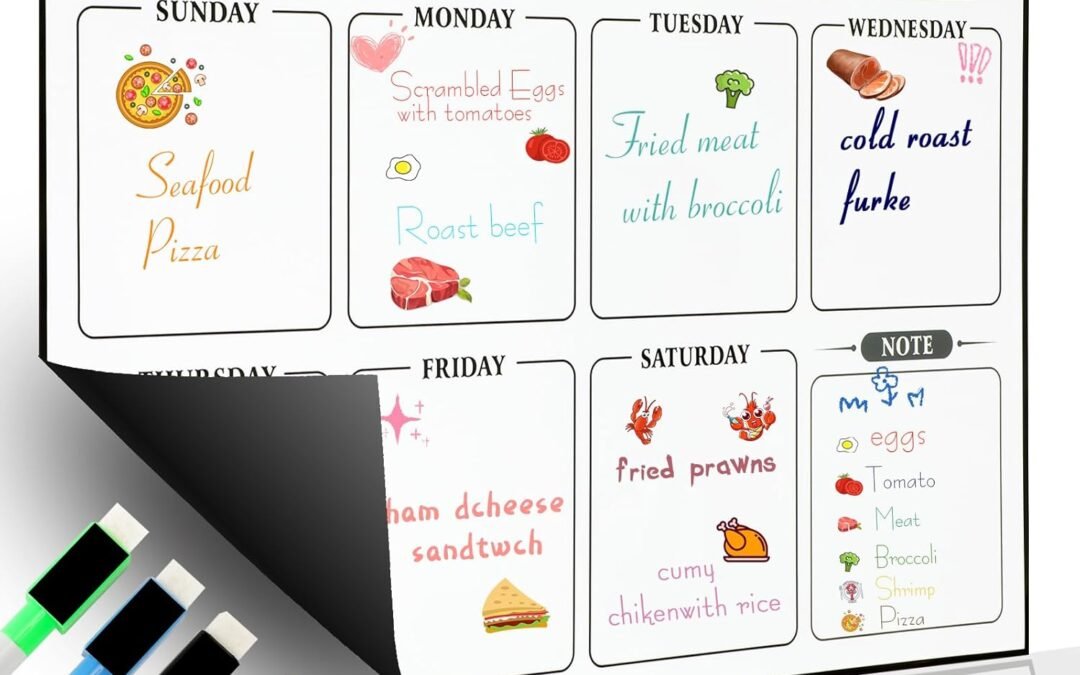 SUNDAY
Seafood
Pizza
MONDAY
Scrambled Eggs
with tomatoes
Roast beef
TUESDAY
Fried meat
with broccoli
WEDNESDAY
!!!
cold roast
furke
THURSDAY
FRIDAY
ham dcheese
sandtwch
SATURDAY
fried prawns
cumy
chikenwith rice
NOTE
eggs
Tomato
Meat
Broccoli
Shrimp
Pizza